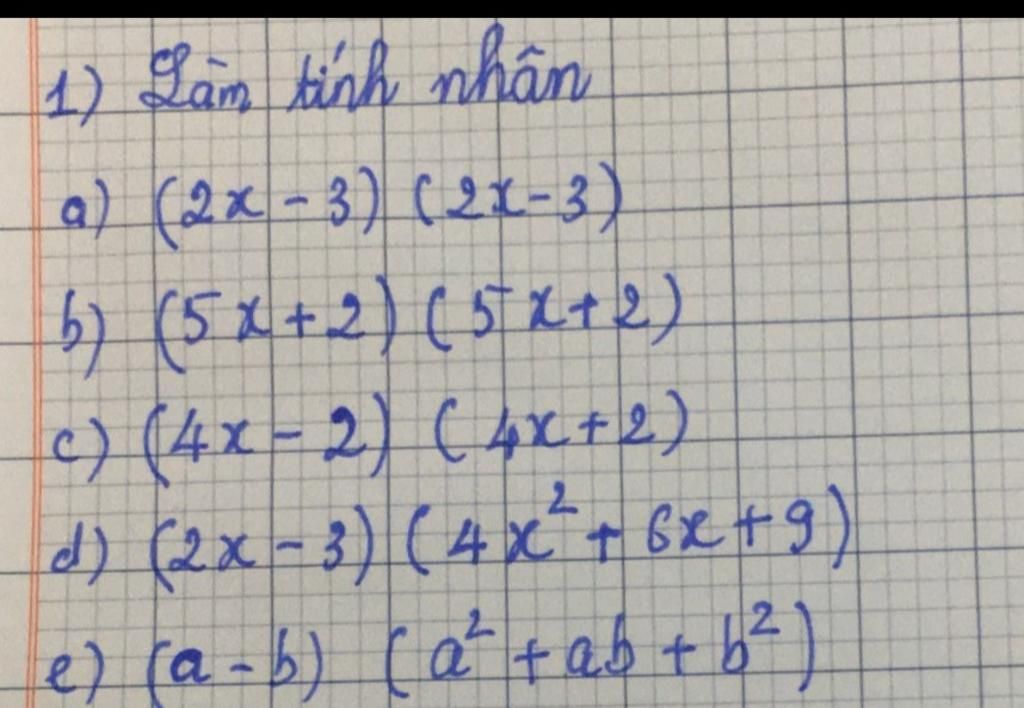 1) Làm tính nhân
a) (2x - 3) (2x - 3)
b) (5x + 2) (5x + 2)
c) (4x - 2) (4x + 2)
d) (2x - 3) (4x² + 6x + 9)
e) (a - b) (a² + ab + b²)